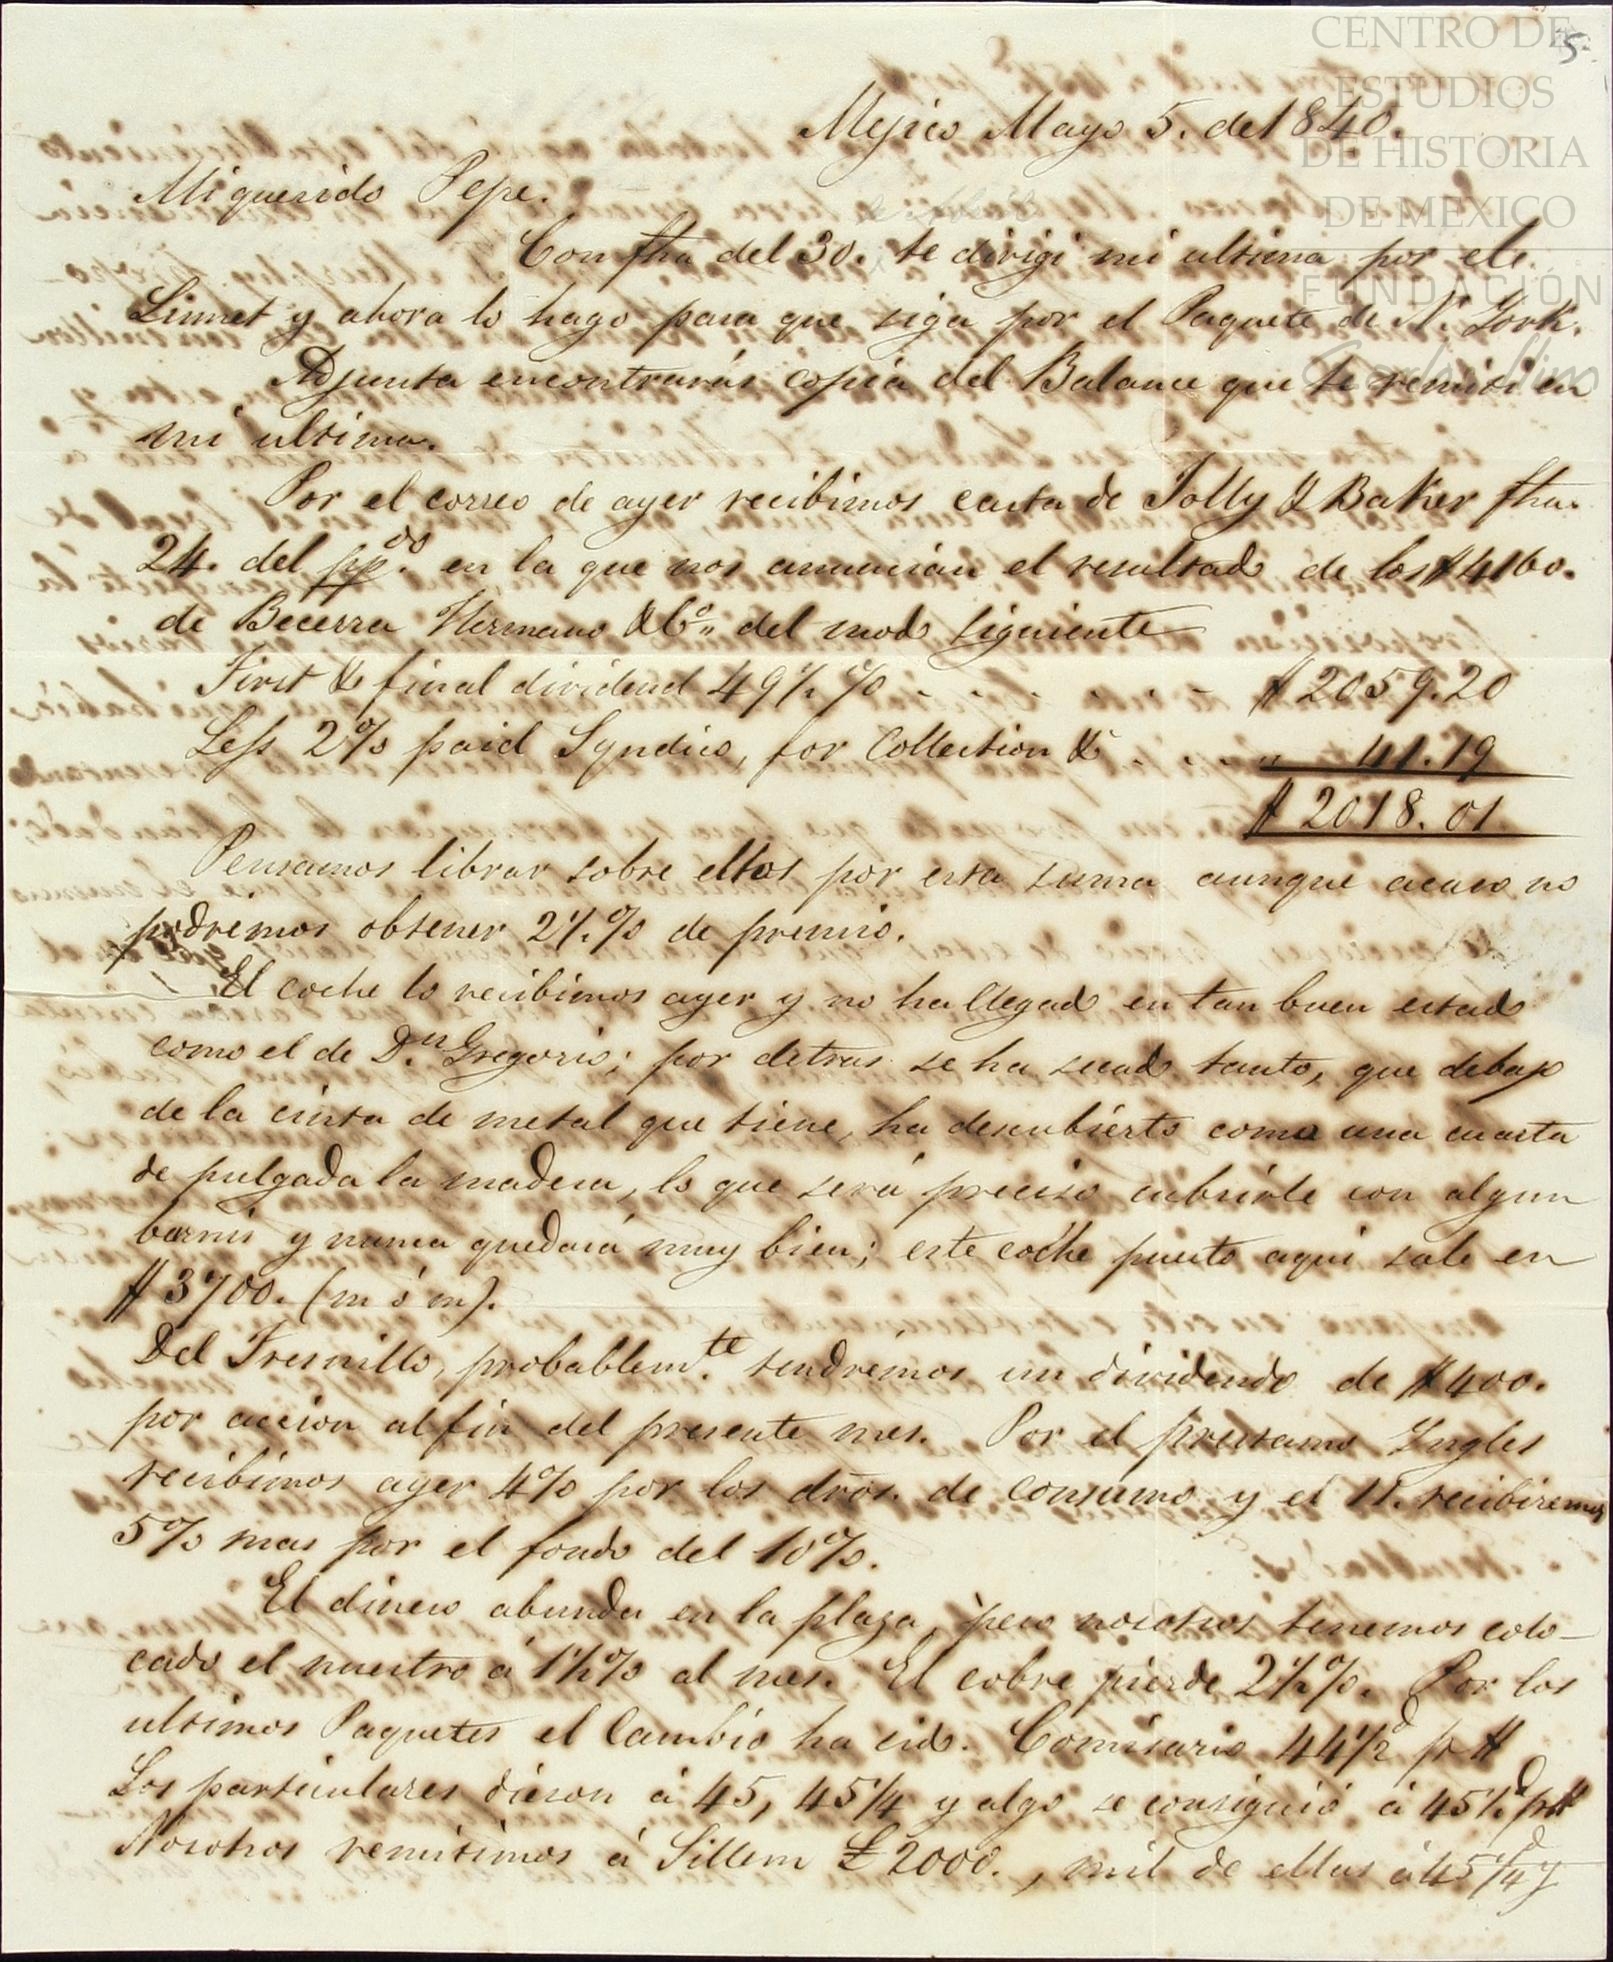 CENTRO DE
ESTUDIOS
DE HISTORIA
DE MEXICO
FUNDACIÓN
5.
Mejico Mayo 5. de 1840.
Mi querido Pepe.
Con fha del 30. te dirigi mi ultima por el
Linnet y ahora lo hago para que siga por el Paquete de N. York.
Adjunta encontrarás copia del Balance que te remiti en
mi ultima.
Por el correo de ayer recibimos carta de Jolly & Baker fha.
24. del pp.do en la que nos anuncian el resultado de los $4160.
de Becerra Hermano & Co. del modo siguiente
First & final dividend 49½% . . . . . . . $2059.20
Less 2% paid Syndico, for Collection & . . . . " 41.19
$2018.01
Pensamos librar sobre ellos por esta suma aunque acaso no
podrémos obtener 2½% de premio.
El coche lo recibimos ayer y no ha llegado en tan buen estado
como el de D.n Gregorio; por detras se ha secado tanto, que debajo
de la cinta de metal que tiene, ha descubierto como una cuarta
de pulgada la madera, lo que será preciso cubrirle con algun
barnis y nunca quedará muy bien; este coche puesto aqui sale en
$3700. (m ó m).
Del Fresnillo, probablem.te tendrémos un dividendo de $400.
por accion al fin del presente mes. Por el prestamo Yngles
recibimos ayer 4% por los dros. de consumo y el 15. recibiremos
5% mas por el fondo del 10%.
El dinero abunda en la plaza, pero nosotros tenemos colo-
cado el nuestro á 1½% al mes. El cobre pierde 2½%. Por los
ultimos Paquetes el Cambio ha sido. Comisario 44½d p $
Los particulares dieron á 45, 45¼ y algo se consiguió á 45½d p $
Nosotros remitimos á Sillem £2000., mil de ellas á 45¼d y